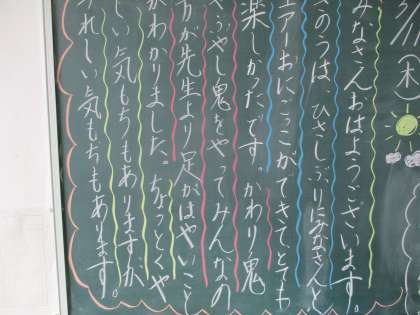 みなさんおはようございます。
きのうは、ひさしぶりにみなさんと
エアーおにごっこができて、とても
楽しかったです。かわり鬼
やふやし鬼をやってみんなの
方が先生より足がはやいこと
がわかりました。ちょっとくや
しい気もちもありますが、
うれしい気もちもあります。